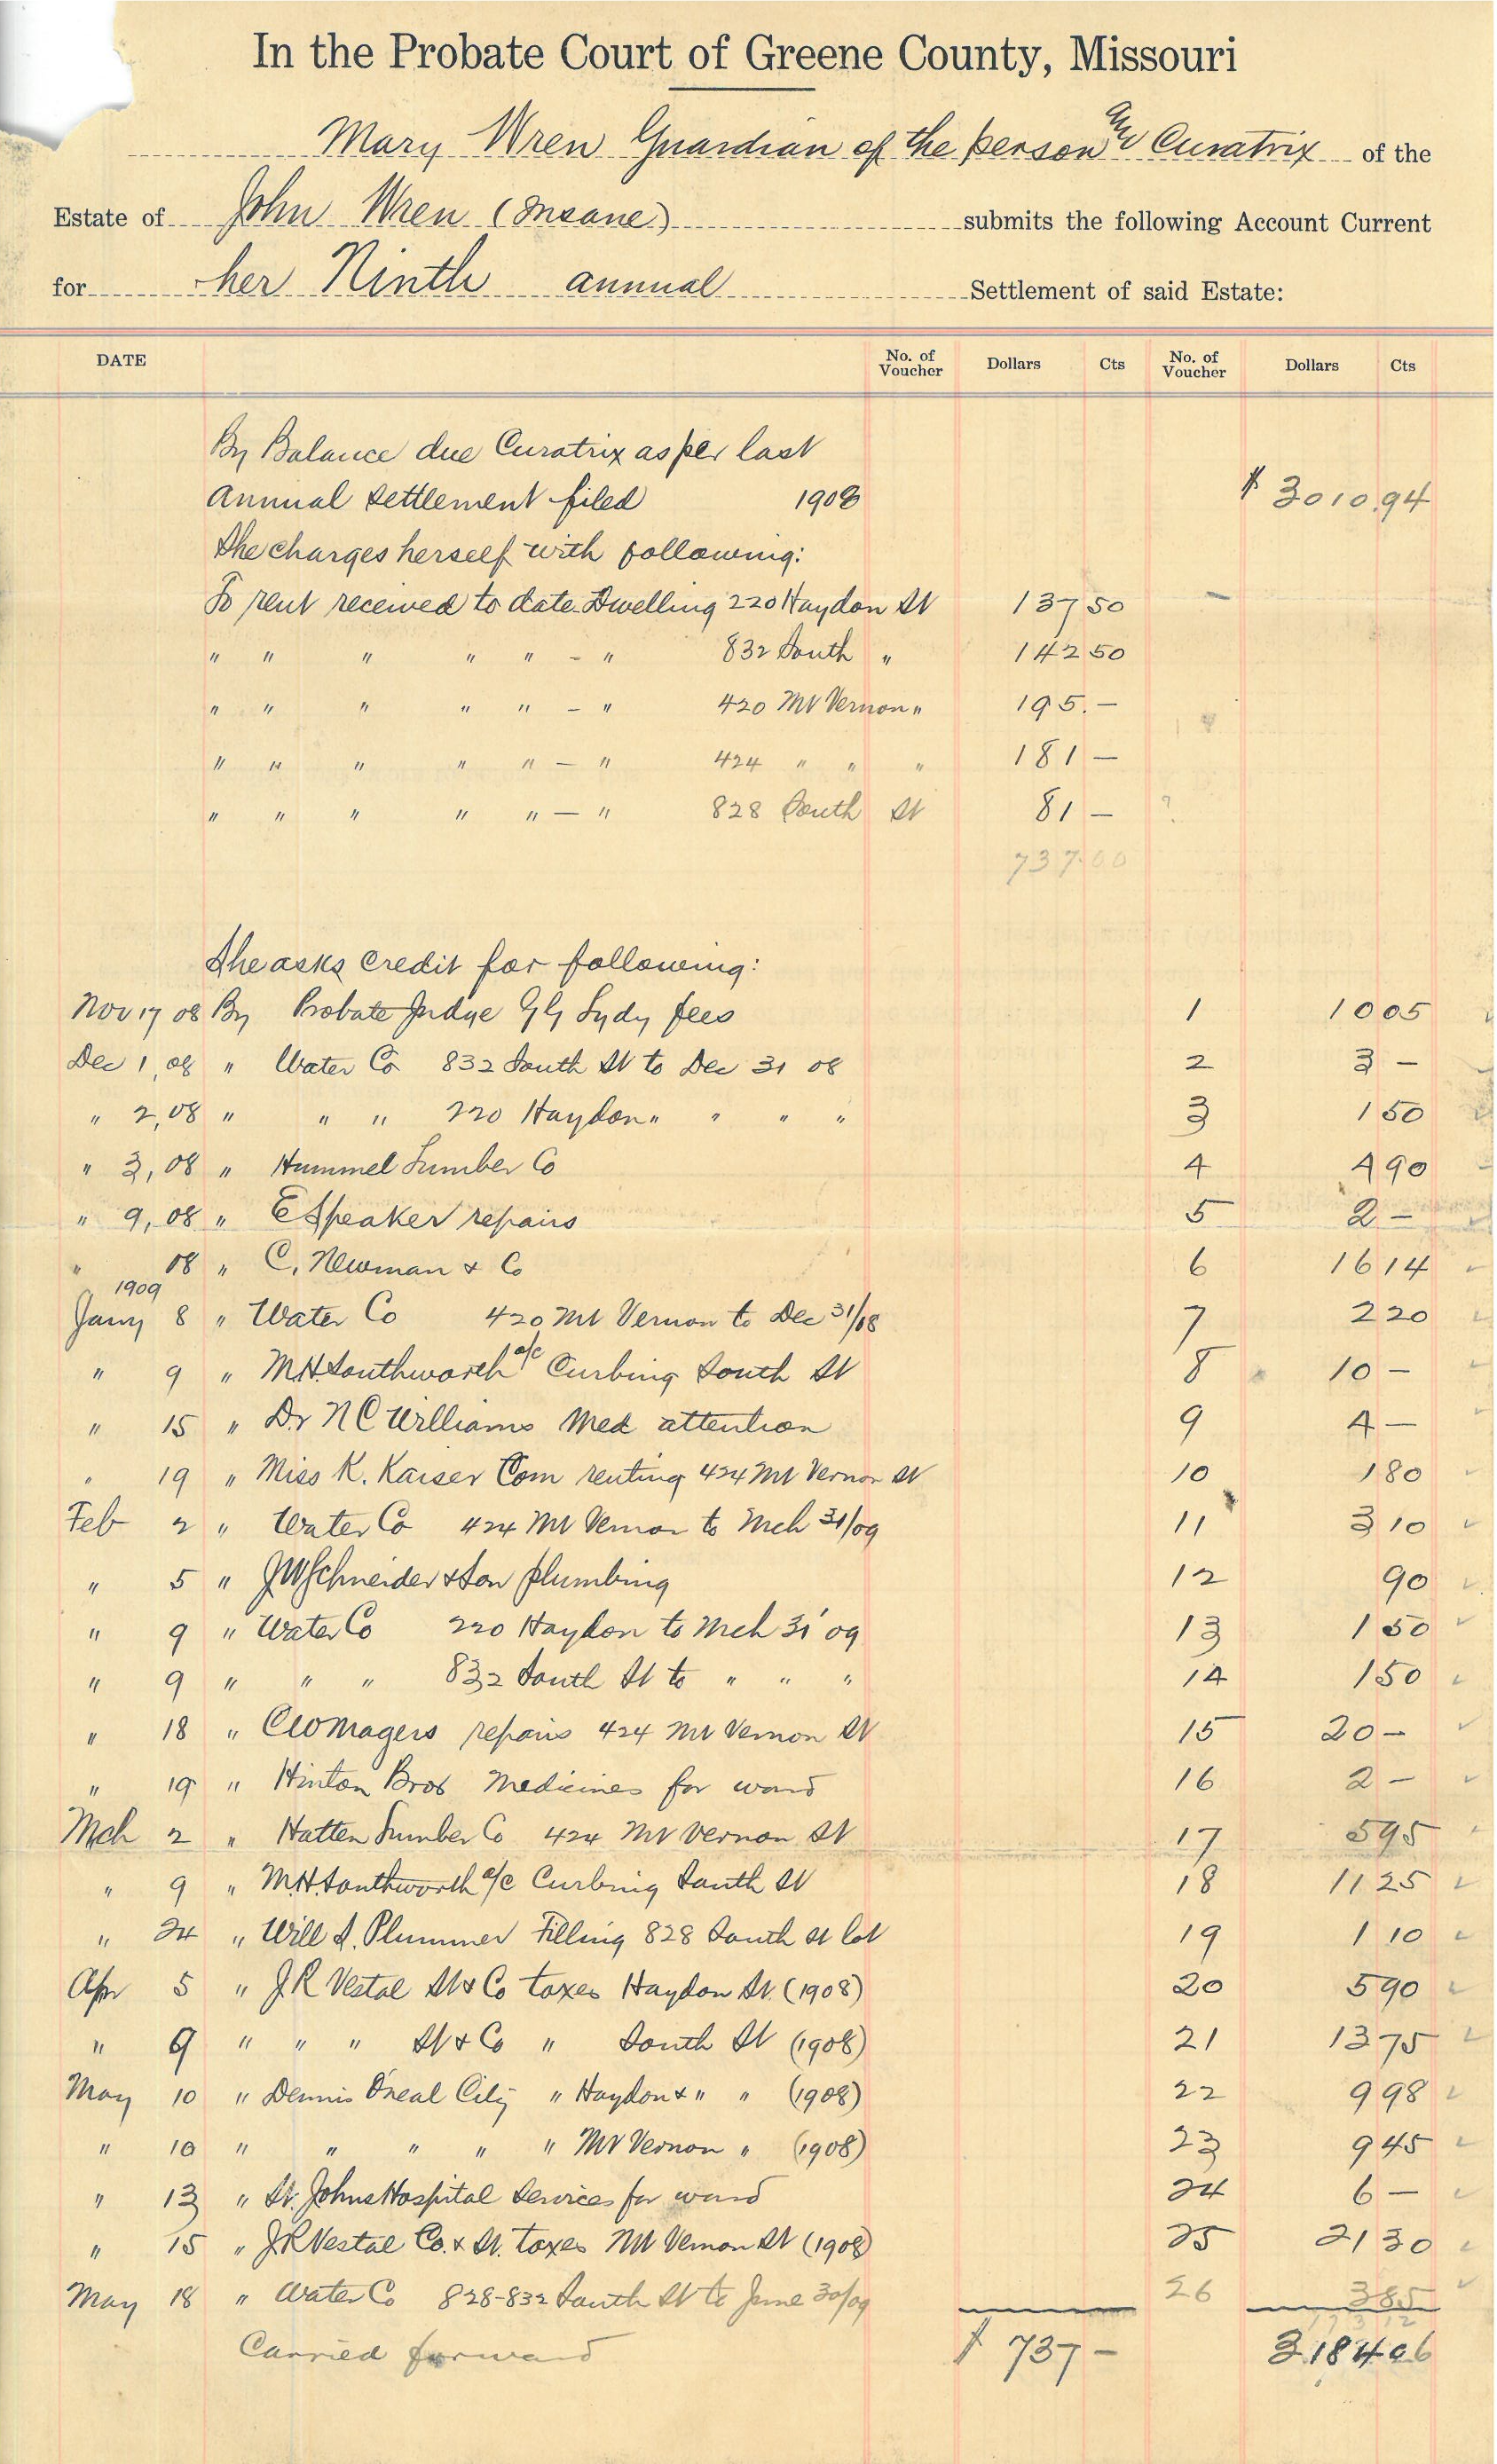 In the Probate Court of Greene County, Missouri
Mary Wren Guardian of the person and Curatrix of the
Estate of John Wren (Insane) submits the following Account Current
for her Ninth annual Settlement of said Estate:
DATE No. of Voucher Dollars Cts No. of Voucher Dollars Cts
By Balance due Curatrix as per last
annual settlement filed 1908 $ 3010.94
She charges herself with following:
To rent received to date Dwelling 220 Haydon St 137 50
" " " " " - " 832 South " 142 50
" " " " " - " 420 Mt Vernon " 195. -
" " " " " - " 424 " " " 181 -
" " " " " - " 828 South St 81 - ?
737.00
She asks credit for following:
Nov 17 08 By Probate Judge G G Lydy fees 1 10 05
Dec 1, 08 " Water Co 832 South St to Dec 31 08 2 3 -
" 2, 08 " " " 220 Haydon " " " " 3 1 50
" 3, 08 " Hummel Lumber Co 4 4 90
" 9, 08 " E Speaker repairs 5 2 -
" 08 " C. Newman & Co 6 16 14
1909
Jany 8 " Water Co 420 Mt Vernon to Dec 31/08 7 2 20
" 9 " M.H. Southworth a/c Curbing South St 8 10 -
" 15 " Dr N C Williams Med attention 9 4 -
" 19 " Miss K. Kaiser Com renting 424 Mt Vernon St 10 1 80
Feb 2 " Water Co 424 Mt Vernon to Mch 31/09 11 3 10
" 5 " J W Schneider & Son plumbing 12 90
" 9 " Water Co 220 Haydon to Mch 31' 09 13 1 50
" 9 " " " 832 South St to " " " 14 1 50
" 18 " C W Magers repairs 424 Mt Vernon St 15 20 -
" 19 " Hinton Bros Medicines for ward 16 2 -
Mch 2 " Hatten Lumber Co 424 Mt Vernon St 17 5 95
" 9 " M.H. Southworth a/c Curbing South St 18 11 25
" 24 " Will S. Plummer Filling 828 South St lot 19 1 10
Apr 5 " J R Vestal St & Co taxes Haydon St. (1908) 20 5 90
" 9 " " " St & Co " South St (1908) 21 13 75
May 10 " Dennis Oneal City " Haydon & " " (1908) 22 9 98
" 10 " " " " " Mt Vernon " (1908) 23 9 45
" 13 " St. Johns Hospital Services for ward 24 6 -
" 15 " J R Vestal Co. & St. taxes Mt Vernon St (1908) 25 21 30
May 18 " Water Co 828-832 South St to June 30/09 26 3 85
Carried forward $ 737 - 3184 06